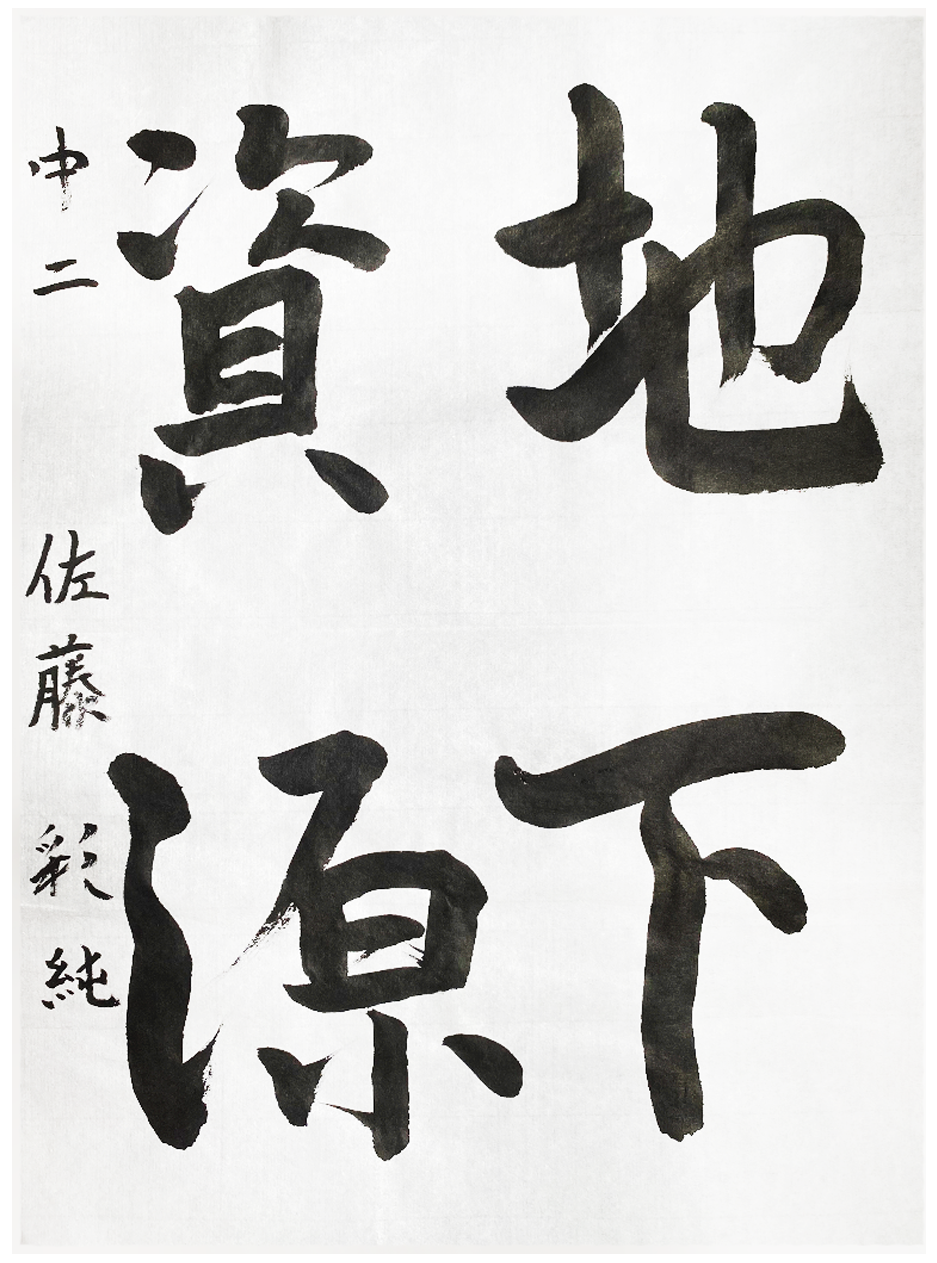 地下
資源
中二 佐藤 彩純